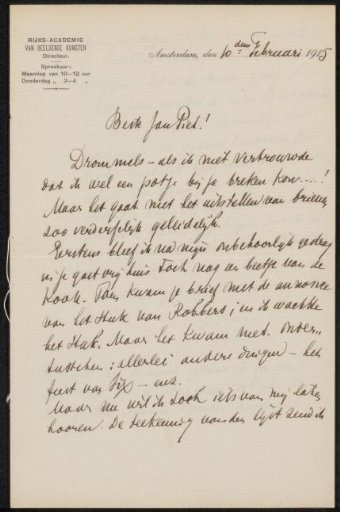 RIJKS-ACADEMIE
VAN BEELDENDE KUNSTEN
Directeur.
Spreekuur:
Maandag van 10—12 uur
Donderdag „ 2—4 „
Amsterdam, den 10den Februari 1915
Beste Jan Piet!
Drommels — als ik niet vertrouwde
dat ik wel een potje bij je breken kon....!
Maar het gaat met het uitstellen van brieven
zoo verderfelijk geleidelijk.
Eerstens bleef ik na mijn onbehoorlijk gedrag
in je gastvrij huis toch nog een beetje van de
kook. Toen kwam je brief met de annonce
van het stuk van Robbers; en ik wachtte
het stuk. Maar het kwam niet. Onder-
tusschen: allerlei andere dingen — het
feest van Six — enz.
Maar nu wil ik toch iets van mij laten
hooren. De teekening van den lijst zend ik